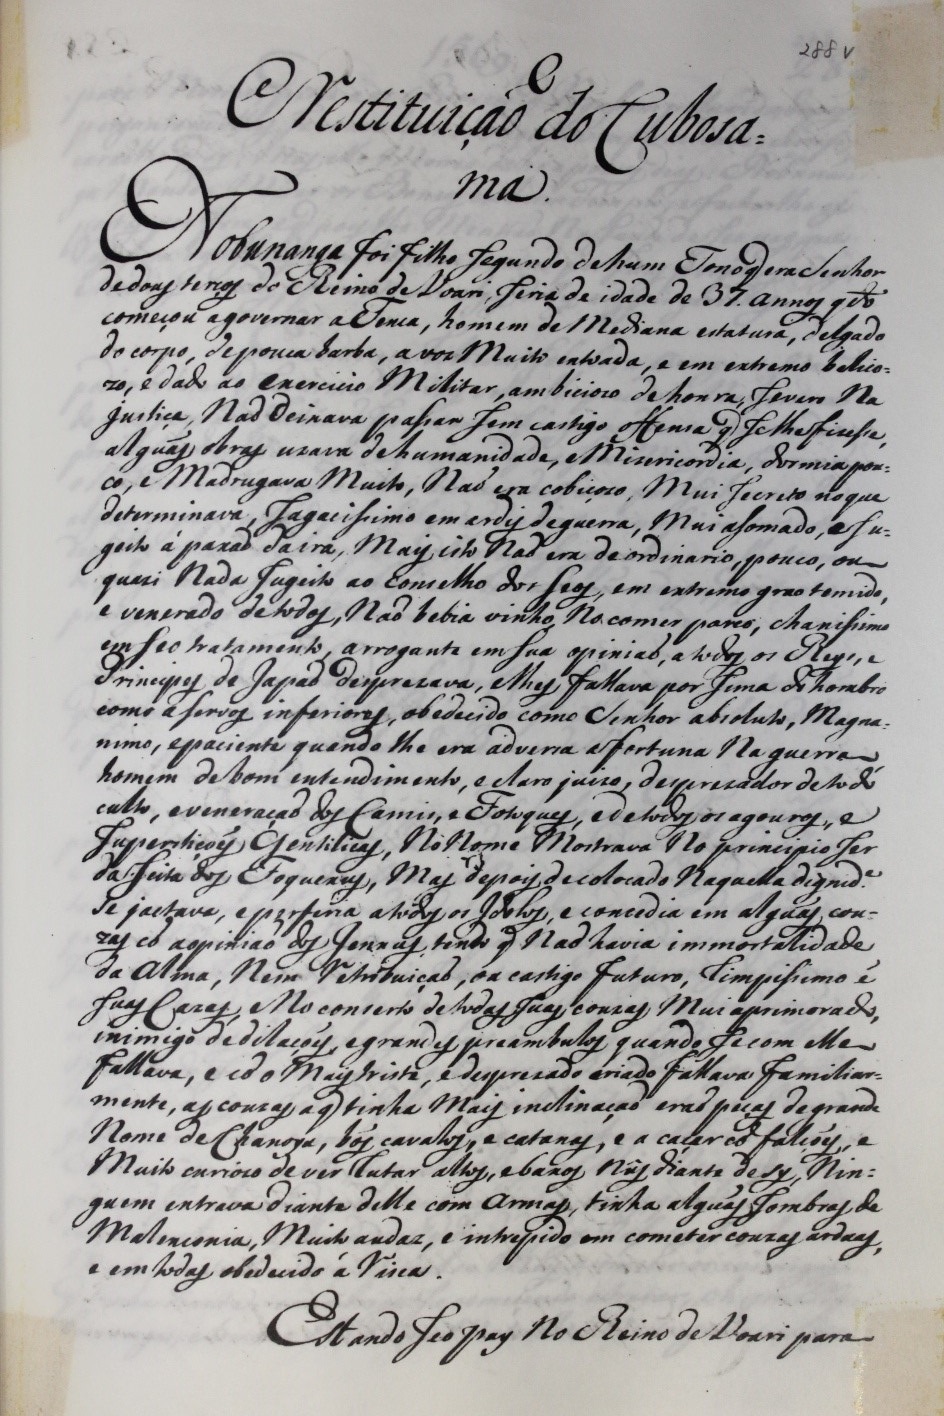 288 v
e
Restituição do Cubosa=
má.
Nobunanga foi filho segundo de hum Tono q̃ era Senhor
de dous terços do Reino de Voari, seria de idade de 37. annos q.do
começou a governar a Tenca, homem de Mediana estatura, delgado
do corpo, de pouca barba, a voz Muito entoada, e em extremo belico=
zo, e dado ao exercicio Militar, ambicioso de honra, severo Na
justiça, Naõ deixava passar sem castigo offensa q̃ se lhe fizesse,
alguãs obras uzava de humanidade, e Mizericordia, dormia pou=
co, e Madrugava Muito, Naõ era cobiçozo, Mui secreto no que
determinava, sagacissimo em ardis de guerra, Mui asomado, e su=
geito á paxaõ da ira, Mays isto Naõ era de ordinario, pouco, ou
quasi Nada sugeito ao conselho dos seos, em extremo grao temido,
e venerado de todos, Naõ bebia vinho, No comer parco, chanissimo
em seo tratamento, arrogante em sua opiniaõ, a todos os Reys, e
Principes de Japaõ desprezava, e lhes fallava por sima do hombro
como a servos inferiores, obedecido como Senhor absoluto, Magna=
nimo, e paciente quando lhe era adversa a fortuna Na guerra
homem de bom entendimento, e claro juizo, desprezador de todo
culto, e veneraçaõ dos Camis, e Fotoques, e de todos os agouros, e
superstiçoẽs Gentilicas, No Nome Mostrava No principio ser
da seita dos Foquexus, Mas depois de colocado Naquella dignid.e
se jactava, e preferia a todos os Idolos, e concedia em alguãs cou=
zas cõ a opiniaõ dos Jenxus, tendo q̃ Naõ havia immortalidade
da Alma, Nem retribuiçaõ, ou castigo futuro, limpissimo ẽ
suas Cazas, e No conserto de todas suas couzas Mui aprimorado,
inimigo de dilaçoẽs, e grandes preambulos quando se com elle
fallava, e cõ o Mays triste, e desprezado criado fallava familiar=
mente, as couzas a q̃ tinha Mais inclinaçaõ eraõ peças de grande
Nome de Chanoyu, bõs cavalos, e catanas, e a caçar cõ falcoẽs, e
Muito curiozo de ver lutar altos, e baxos Nũs diante de sy, Nin=
guem entrava diante delle com Armas, tinha alguãs sombras de
Malenconia, Muito audaz, e intrepido em cometer couzas arduas,
e em todas obedecido á risca.
Estando seo pay No Reino de Voari para